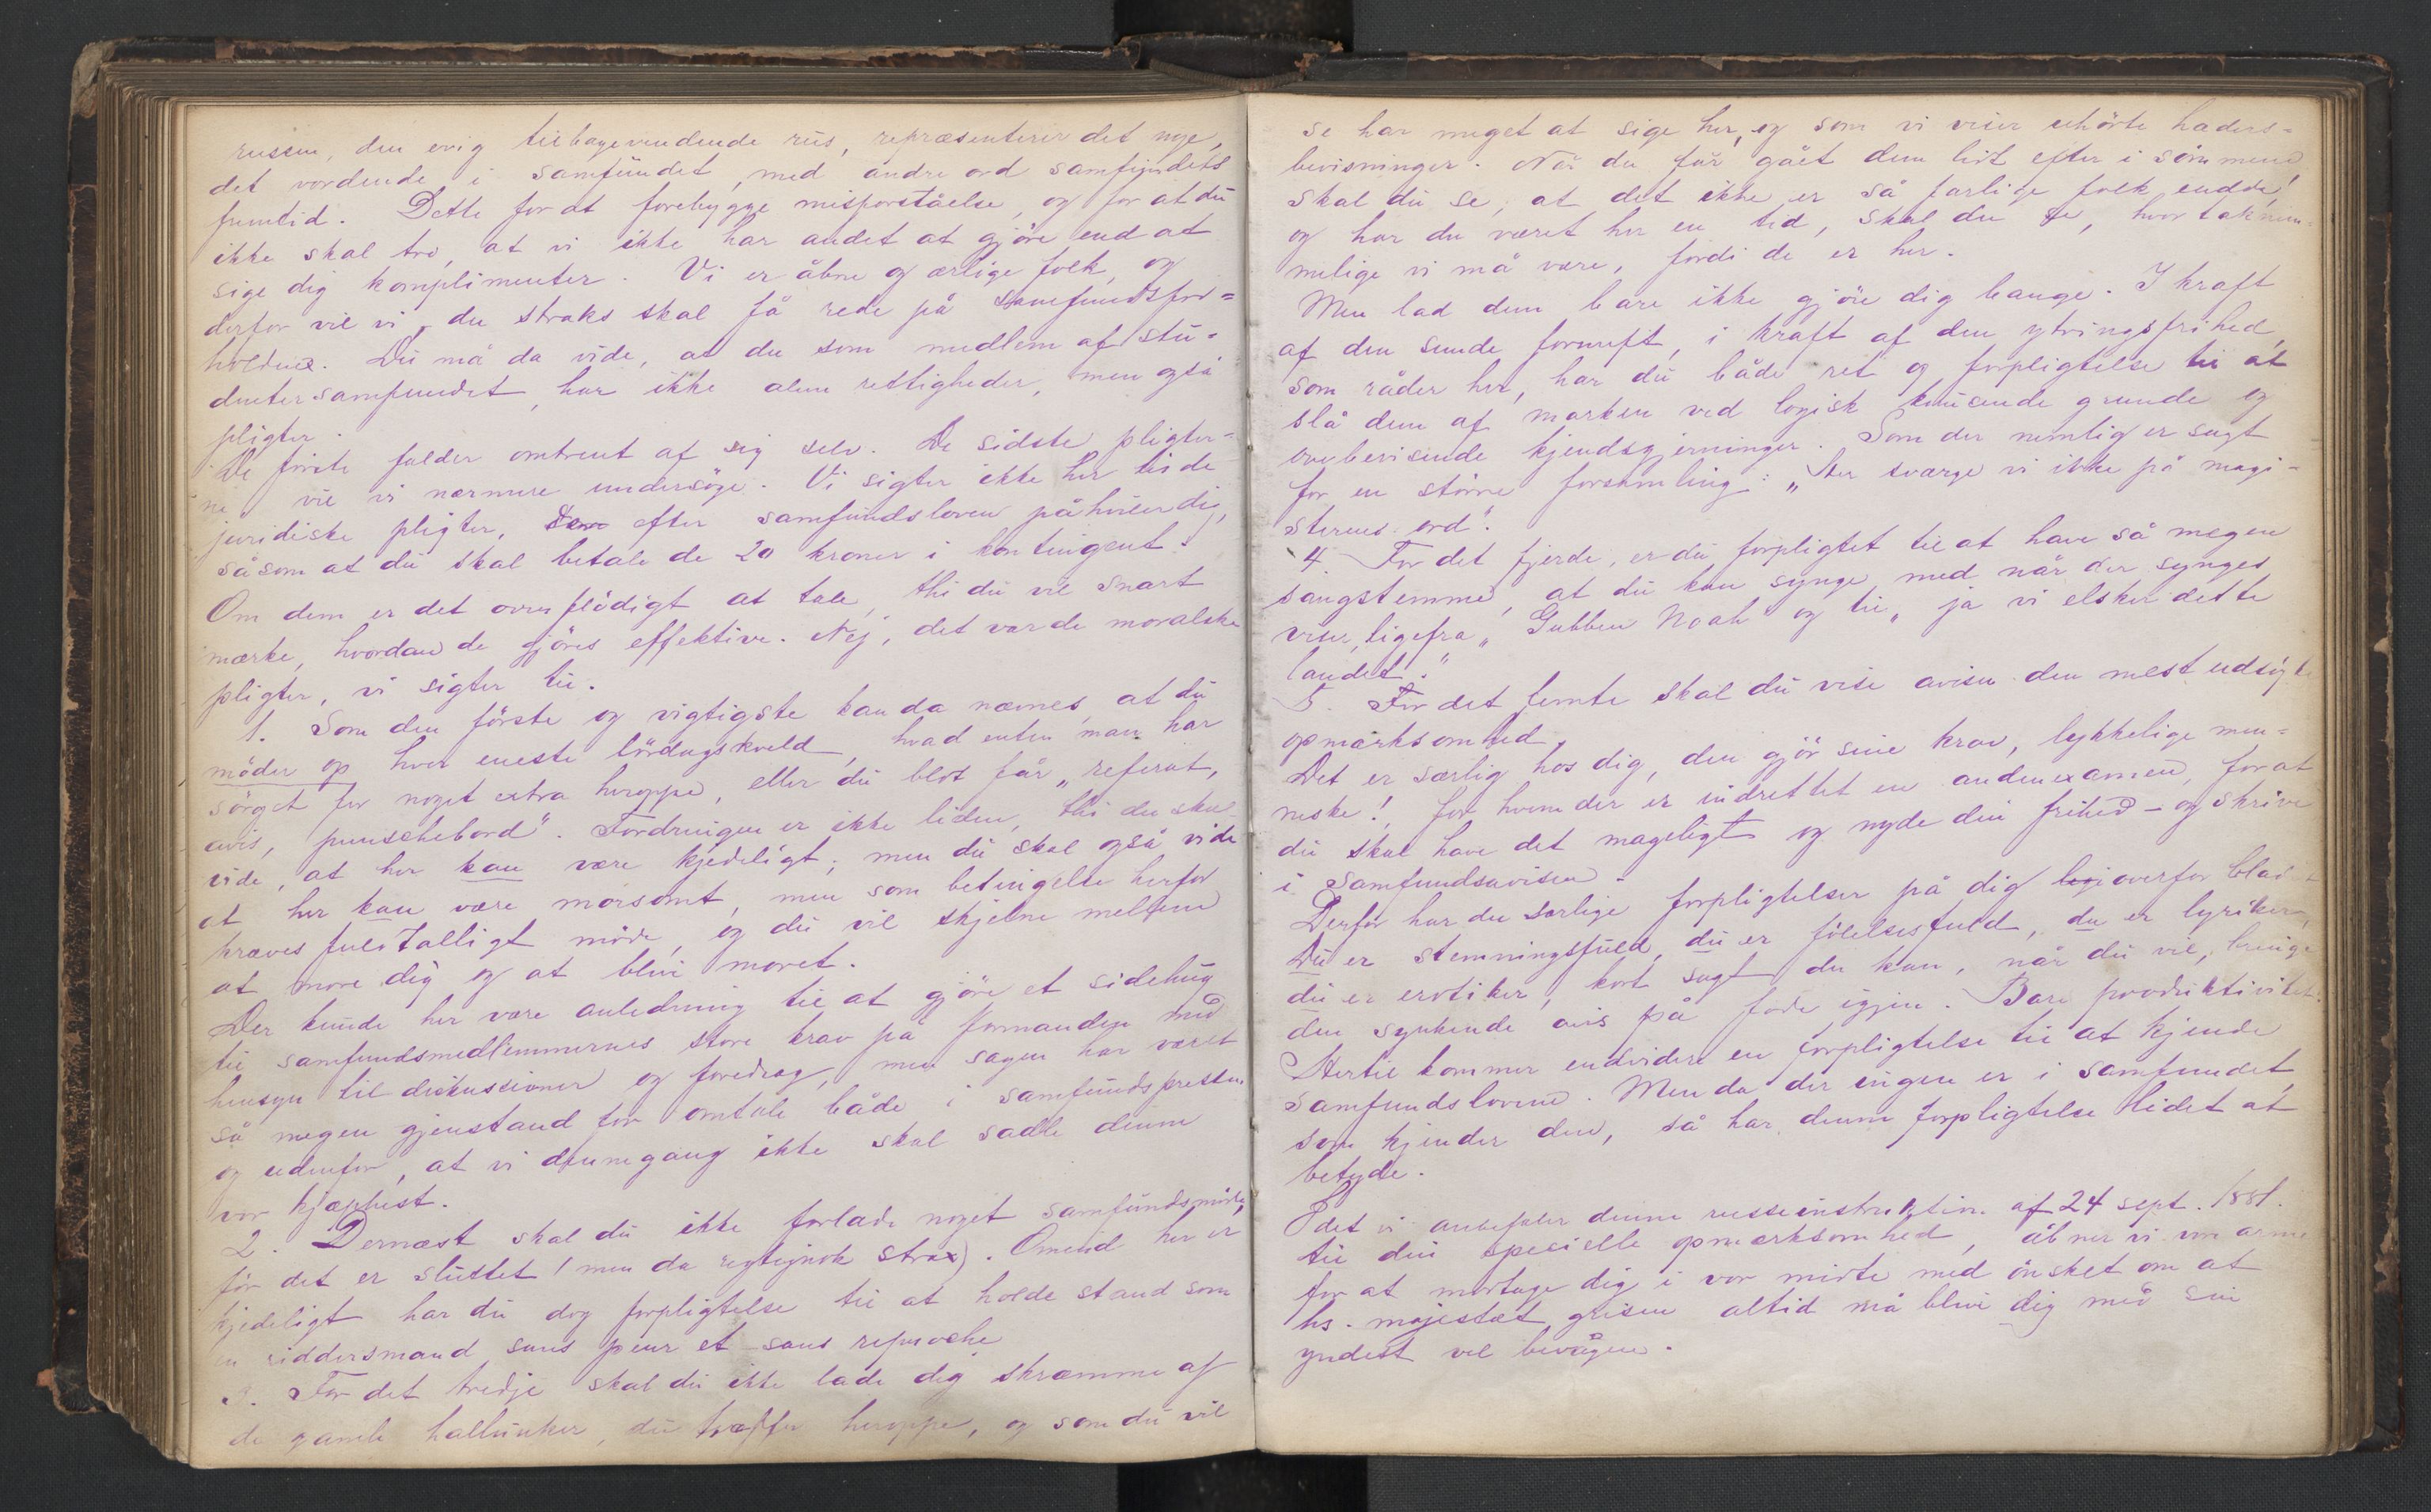 russen, den evig tilbagevendende rus, repræsenterer det nye,
det vordende i samfundet, med andre ord samfundets
fremtid. Dette for at forebygge misforståelse, og for at du
ikke skal tro, at vi ikke har andet at gjöre end at
sige dig komplimenter. Vi er åbne og ærlige folk, og
derfor vil vi, du straks skal få rede på samfundsfor=
holdene. Du må da vide, at du som medlem af stu=
dentersamfundet, har ikke alene rettigheder, men også
pligter.
De första falder omtrent af sig selv. De sidste pligter=
ne vil vi nærmere undersöge. Vi sigter ikke her til de
juridiske pligter, som efter samfundsloven påhviler dig,
såsom at du skal betale de 20 kroner i kontingent.
Om dem er det overflödigt at tale, thi du vil snart
mærke, hvordan de gjöres effektive. Nej, det var de moralske
pligter, vi sigter til.
1. Som den förste og vigtigste kan da nævnes, at du
möder op hver eneste lördagskveld, hvad enten man har
sörget for noget extra heroppe, eller du blot får „referat,
avis, punschebord". Fordringen er ikke liden, thi du skal
vide, at her kan være kjedeligt; men du skal også vide
at her kan være morsomt, men som betingelse herfor
kræves fuldtalligt möde, og du vil skjelne mellem
at more dig og at blive moret.
Der kunde her være anledning til at gjöre et sidehug
til samfundsmedlemmernes store krav på formanden med
hensyn til diskussioner og foredrag, men sagen har været
så megen gjenstand for omtale både i samfundspressen
og udenfor, at vi dennegang ikke skal sadle denne
vor kjæphest.
2. Dernæst skal du ikke forlade noget samfundsmöde,
för det er sluttet (men da rigtignok strax). Omend her er
kjedeligt har du dog forpligtelse til at holde stand som
en riddersmand sans peur et sans reproche
3. For det tredje skal du ikke lade dig skræmme af
de gamle hallunker, du træffer heroppe, og som du vil
se har meget at sige her, og som vi viser uhörte hæders=
bevisninger. Når du får gået dem lidt efter i sömmene,
skal du se, at det ikke er så farlige folk endda,
og har du været her en tid, skal du se, hvor taknem=
melige vi må være, fordi de er her.
Men lad dem bare ikke gjöre dig bange. I kraft
af den sunde fornuft, i kraft af den ytringsfrihed,
som råder her, har du både ret og forpligtelse til at
slå dem af marken ved logisk knusende grunde og
overbevisende kjendsgjerninger. Som der nemlig er sagt
for en större forsamling: „Her sværge vi ikke på magi=
sterens ord".
4. For det fjerde, er du forpligtet til at have så megen
sangstemme, at du kan synge med når der synges
viser, ligefra „Gubben Noah og til „ja vi elsker dette
landet."
5. For det femte skal du vise avisen den mest udsögte
opmærksomhed.
Det er særlig hos dig, den gjör sine krav, lykkelige men=
neske! for hvem der er indrettet en andenexamen, for at
du skal have det mageligt og nyde din frihed – og skrive
i Samfundsavisen.
Derfor har du særlige forpligtelser på dig overfor bladet
Du er stemningsfuld, du er fölelsesfuld, du er lyriker,
du er erotiker, kort sagt du kan, når du vil, bringe
den synkende avis på fode igjen. Bare produktivitet.
Hertil kommer endvidere en forpligtelse til at kjende
samfundsloven. Men da der ingen er i samfundet,
som kjender den, så har denne forpligtelse lidet at
betyde.
Idet vi anbefaler denne russeinstruktion af 24 sept. 1881.
til din specielle opmærksomhed, åbner vi vor arme
for at modtage dig i vor midte med önsket om at
hs. majestæt grisen altid må blive dig med sin
yndest vel bevågen.